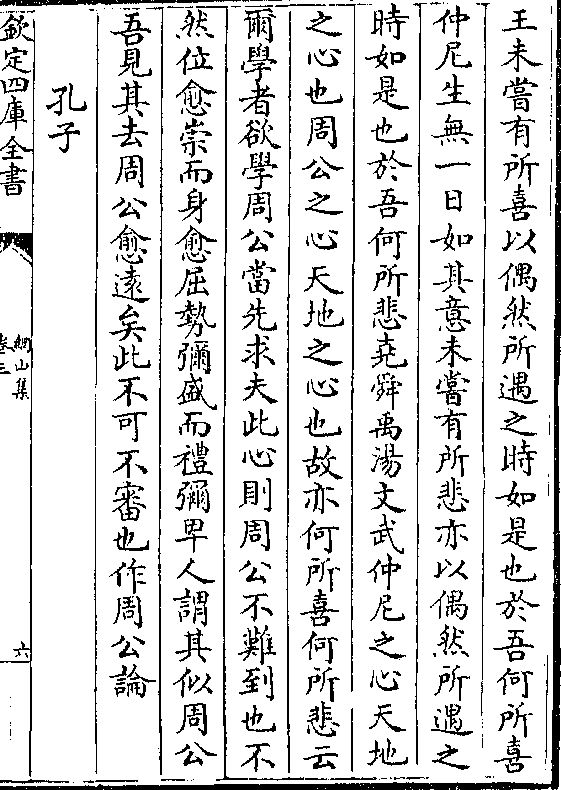 王未嘗有所喜以偶然所遇之時如是也於吾何所喜
仲尼生無一日如其意未嘗有所悲亦以偶然所遇之
時如是也於吾何所悲堯舜禹湯文武仲尼之心天地
之心也周公之心天地之心也故亦何所喜何所悲云
爾學者欲學周公當先求夫此心則周公不難到也不
然位愈崇而身愈屈勢彌盛而禮彌卑人謂其似周公
吾見其去周公愈遠矣此不可不審也作周公論
孔子
欽定四庫全書
網山集
卷三
六